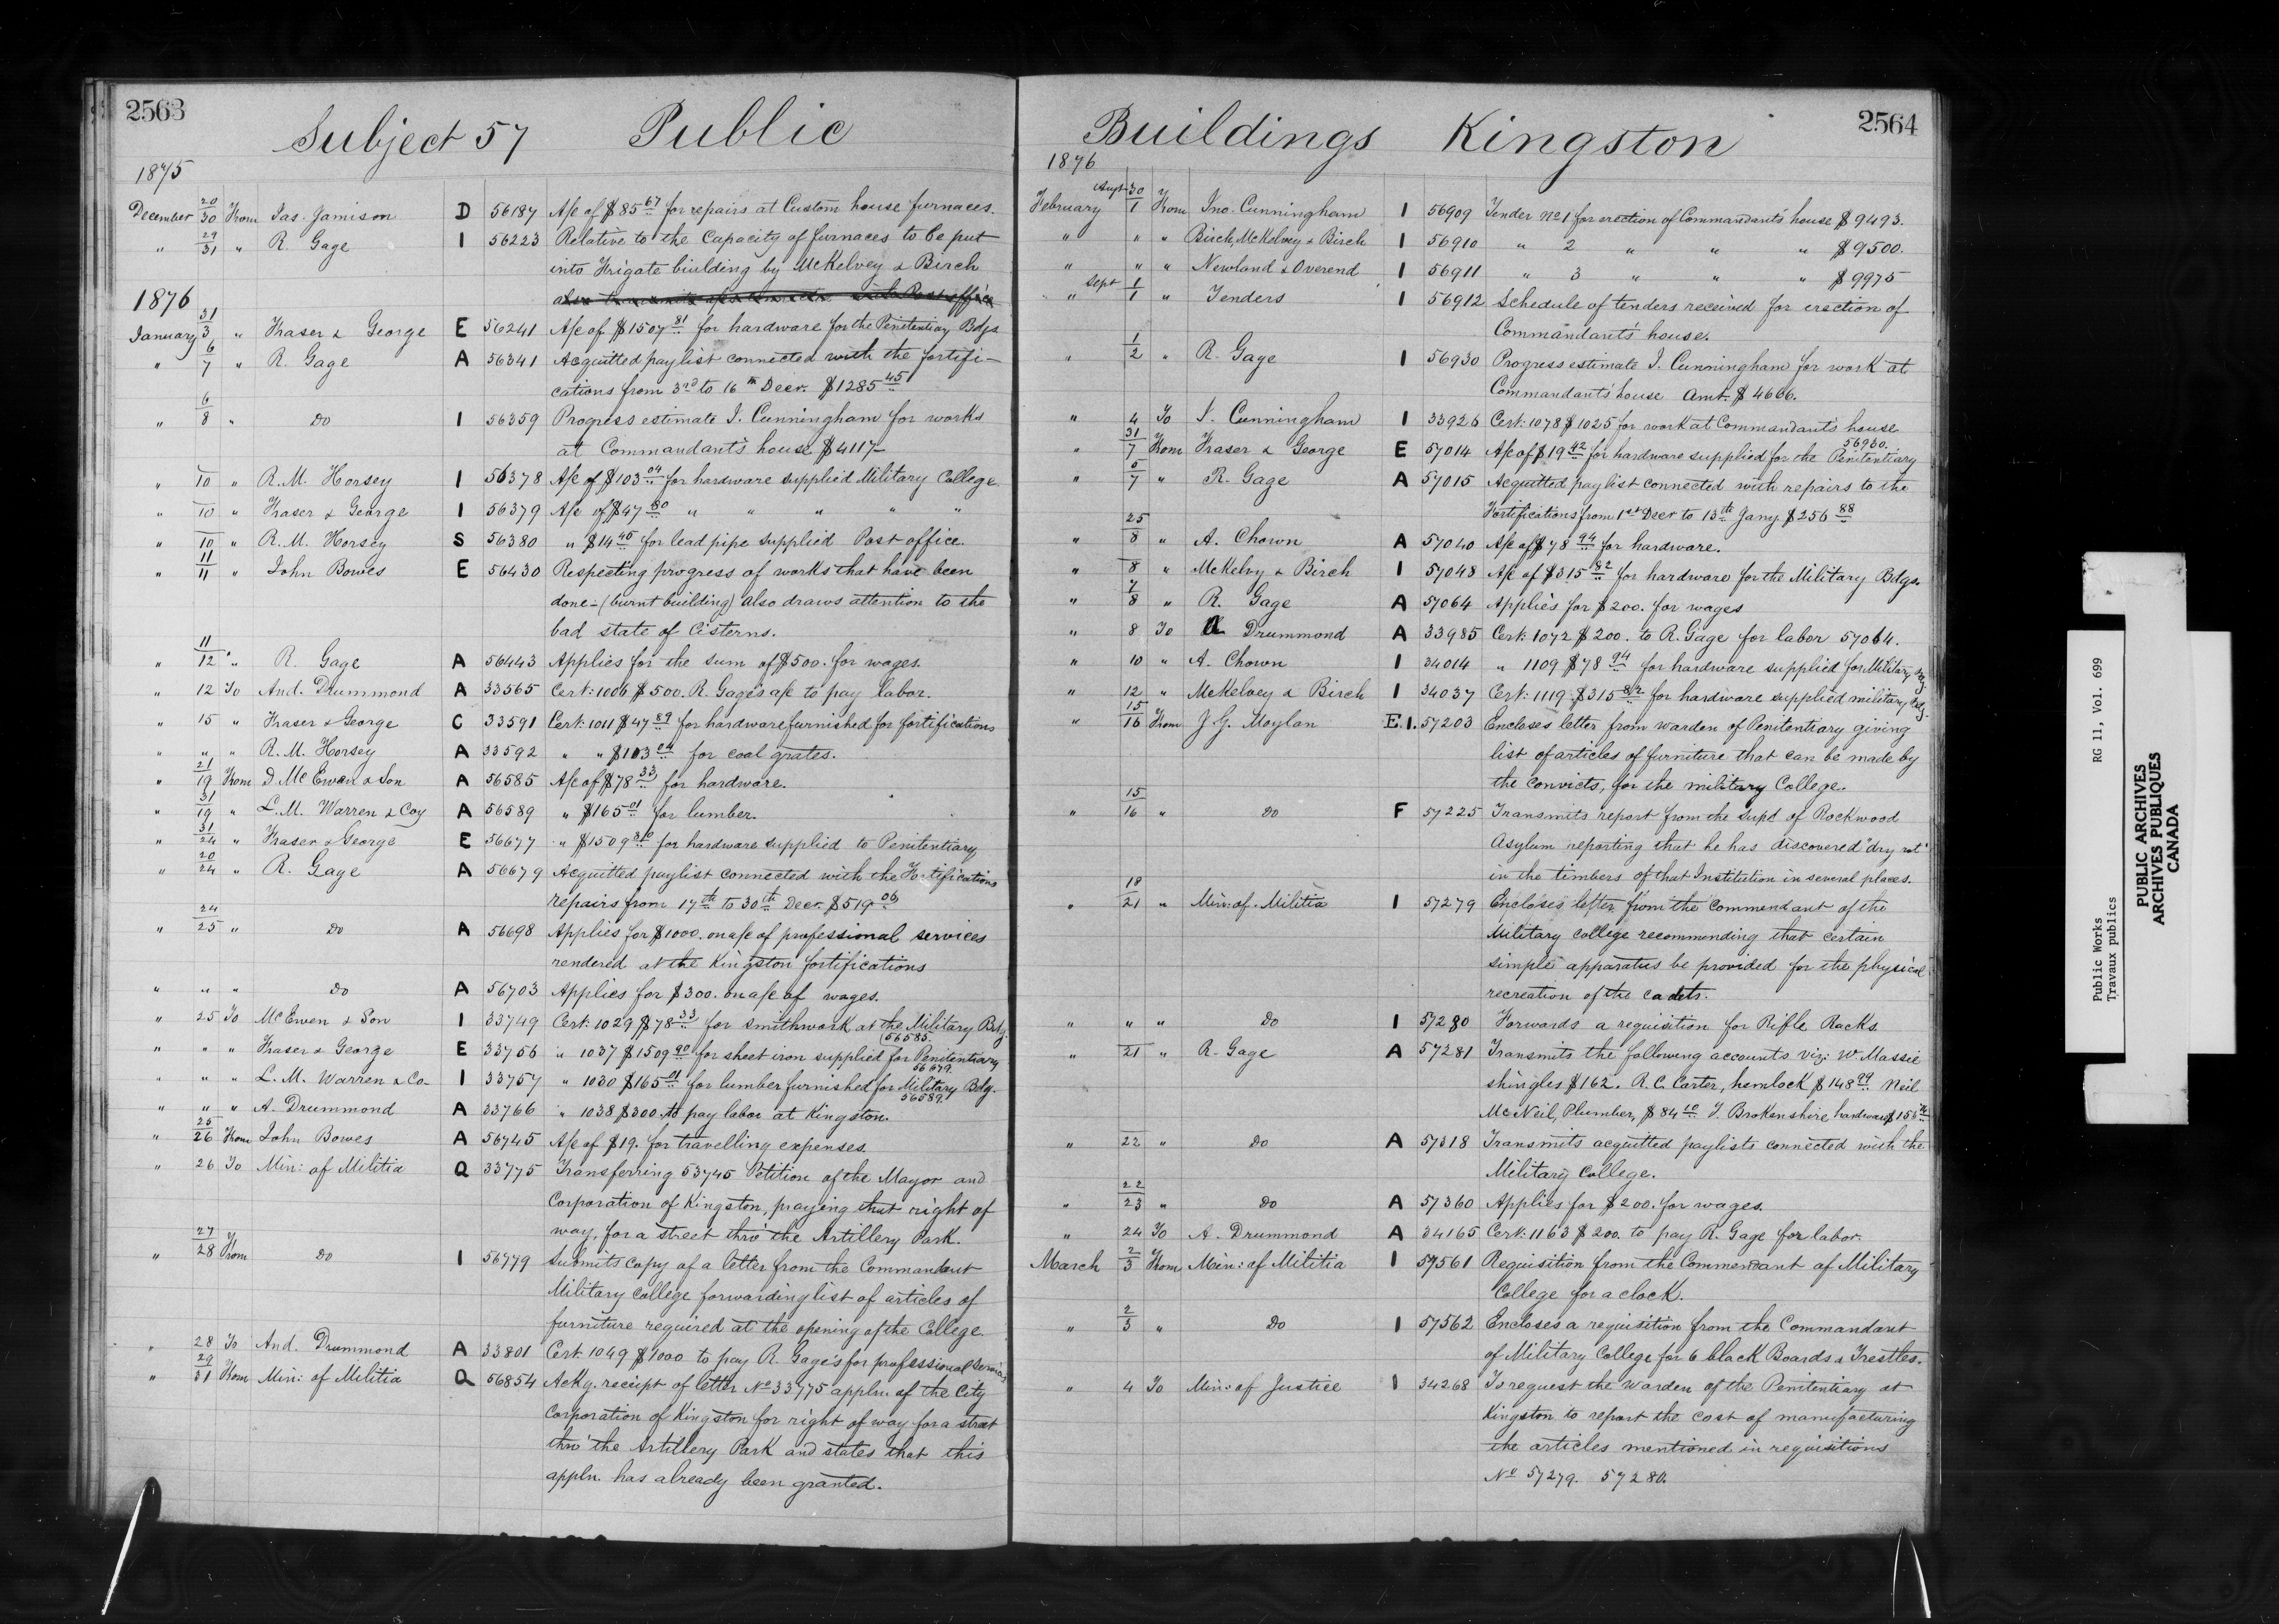 2563
Subject 57 Public
1875
December 20/30 From Jas. Jamison D 56187 A/c of $85 67 for repairs at Custom house furnaces.
" 29/31 " R. Gage I 56223 Relative to the Capacity of furnaces to be put
into Frigate building by McKelvey & Birch
1876
January 31/3 " Fraser & George E 56241 A/c of $1507 81 for hardware for the Penitentiary Bdgs
" 6/7 " R. Gage A 56341 Acquitted paylist connected with the fortifi-
cations from 3rd to 16th Decr. $1285 45
" 6/8 " Do I 56359 Progress estimate J. Cunningham for works
at Commandant's house $4117-
" 10 " R.M. Horsey I 56378 A/c of $103 04 for hardware supplied Military College
" 10 " Fraser & George I 56379 A/c of $47 80 " " " " "
" 10 " R.M. Horsey S 56380 " $14 40 for lead pipe supplied Post office.
" 11/11 " John Bowes E 56430 Respecting progress of works that have been
done - (burnt building) also draws attention to the
bad state of Cisterns.
" 11/12 " R. Gage A 56443 Applies for the sum of $500. for wages.
" 12 To And. Drummond A 33565 Cert: 1006 $500. R. Gage's a/c to pay labor.
" 15 " Fraser & George C 33591 Cert: 1011 $47 89 for hardware furnished for fortifications
" " " R.M. Horsey A 33592 " " $103 04 for coal grates.
" 21/19 From D McEwen & Son A 56585 A/c of $78 33 for hardware.
" 31/19 " L.M. Warren & Coy A 56589 " $165 01 for lumber.
" 31/24 " Fraser & George E 56677 " $1509 80 for hardware supplied to Penitentiary
" 20/24 " R. Gage A 56679 Acquitted paylist connected with the Fortifications
repairs from 17th to 30th Decr. $519 06
" 24/25 " Do A 56698 Applies for $1000. on a/c of professional services
rendered at the Kingston fortifications
" " " Do A 56703 Applies for $300. on a/c of wages.
" 25 To McEwen & Son I 33749 Cert: 1029 $78 33 for smithwork at the Military Bdg.
56585.
" " " Fraser & George E 33756 " 1037 $1509 90 for sheet iron supplied for Penitentiary
56679.
" " " L.M. Warren & Co- I 33757 " 1030 $165 01 for lumber furnished for Military Bdg.
56589.
" " " A. Drummond A 33766 " 1038 $300. to pay labor at Kingston.
" 25/26 From John Bowes A 56745 A/c of $19. for travelling expenses.
" 26 To Min: of Militia Q 33775 Transferring 53745 Petition of the Mayor and
Corporation of Kingston, praying that right of
way, for a street thro' the Artillery Park.
" 27/28 From Do I 56779 Submits copy of a letter from the Commandant
Military College forwarding list of articles of
furniture required at the opening of the College.
" 28 To And. Drummond A 33801 Cert: 1049 $1000 to pay R. Gage's for professional services
" 29/31 From Min: of Militia Q 56854 Ackg. receipt of letter No 33775 appln. of the City
Corporation of Kingston for right of way for a street
thro' the Artillery Park and states that this
appln. has already been granted.
2564
Buildings Kingston
1876
February Augt 30/1 From Jno. Cunningham I 56909 Tender No 1 for erection of Commandant's house $9493.
" " " Birch, McKelvey & Birch I 56910 " 2 " " " $9500.
" " " Newland & Overend I 56911 " 3 " " " $9975
" Sept 1/1 " Tenders I 56912 Schedule of tenders received for erection of
Commandant's house.
" 1/2 " R. Gage I 56930 Progress estimate J. Cunningham for work at
Commandant's house Amt. $4666.
" 4 To J. Cunningham I 33926 Cert: 1078 $1025 for work at Commandant's house
56930.
" 31/7 From Fraser & George E 57014 A/c of $19 42 for hardware supplied for the Penitentiary
" 5/7 " R. Gage A 57015 Acquitted paylist connected with repairs to the
Fortifications from 1st Decr to 13th Jany $256 88
" 25/8 " A. Chown A 57040 A/c of $78 94 for hardware.
" 8 " McKelvy & Birch I 57048 A/c of $315 82 for hardware for the Military Bdgs.
" 7/8 " R. Gage A 57064 Applies for $200. for wages
" 8 To A Drummond A 33985 Cert: 1072 $200. to R. Gage for labor 57064.
" 10 " A. Chown I 34014 " 1109 $78 94 for hardware supplied for Military Bdg.
" 12 " McKelvey & Birch I 34037 Cert: 1119 $315 82 for hardware supplied military Bdg.
" 15/16 From J G. Moylan E.I. 57203 Encloses letter from Warden of Penitentiary giving
list of articles of furniture that can be made by
the convicts, for the military College.
" 15/16 " Do F 57225 Transmits report from the Supd of Rockwood
Asylum reporting that he has discovered "dry rot"
in the timbers of that Institution in several places.
" 18/21 " Min: of Militia I 57279 Encloses letter from the Commendant of the
Military College recommending that certain
simple apparatus be provided for the physical
recreation of the cadets.
" " " Do I 57280 Forwards a requisition for Rifle Racks
" 21 " R. Gage A 57281 Transmits the following accounts viz: W. Massie
shingles $162. R.C. Carter, hemlock $148 99 Neil
McNeil, Plumber, $84 10 J. Brokenshire hardware $15
" 22 " Do A 57318 Transmits acquitted paylists connected with the
Military College.
" 22/23 " Do A 57360 Applies for $200. for wages.
" 24 To A. Drummond A 34165 Cert: 1163 $200. to pay R. Gage for labor.
March 2/3 From Min: of Militia I 57561 Requisition from the Commendant of Military
College for a clock.
" 2/3 " Do I 57562 Encloses a requisition from the Commandant
of Military College for 6 black Boards & Trestles.
" 4 To Min: of Justice I 34268 To request the Warden of the Penitentiary at
Kingston to report the cost of manufacturing
the articles mentioned in requisitions
No 57279. 57280.
Public Works RG 11, Vol. 699
Travaux publics
PUBLIC ARCHIVES
ARCHIVES PUBLIQUES
CANADA